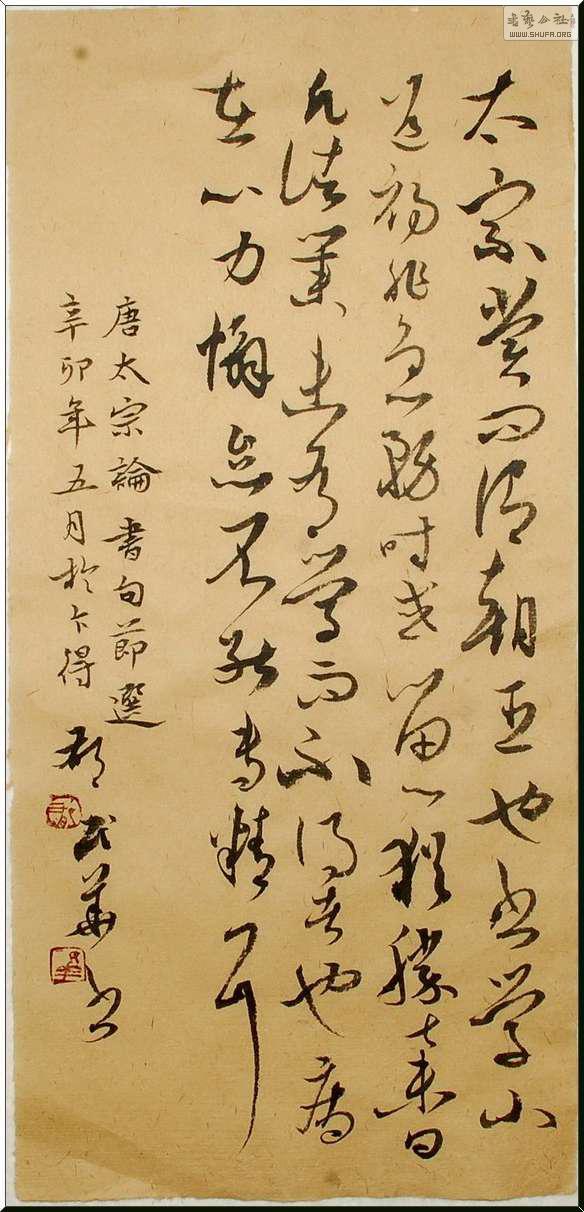 太宗嘗朝臣也書學小
道初非急務時或留心猶勝棄日
凡諸業未有學而不得者也病
在心力懈怠不能專精耳
唐太宗論書句節選
辛卯年五月於得華書
書藝公社
WWW.SHUFA.ORG